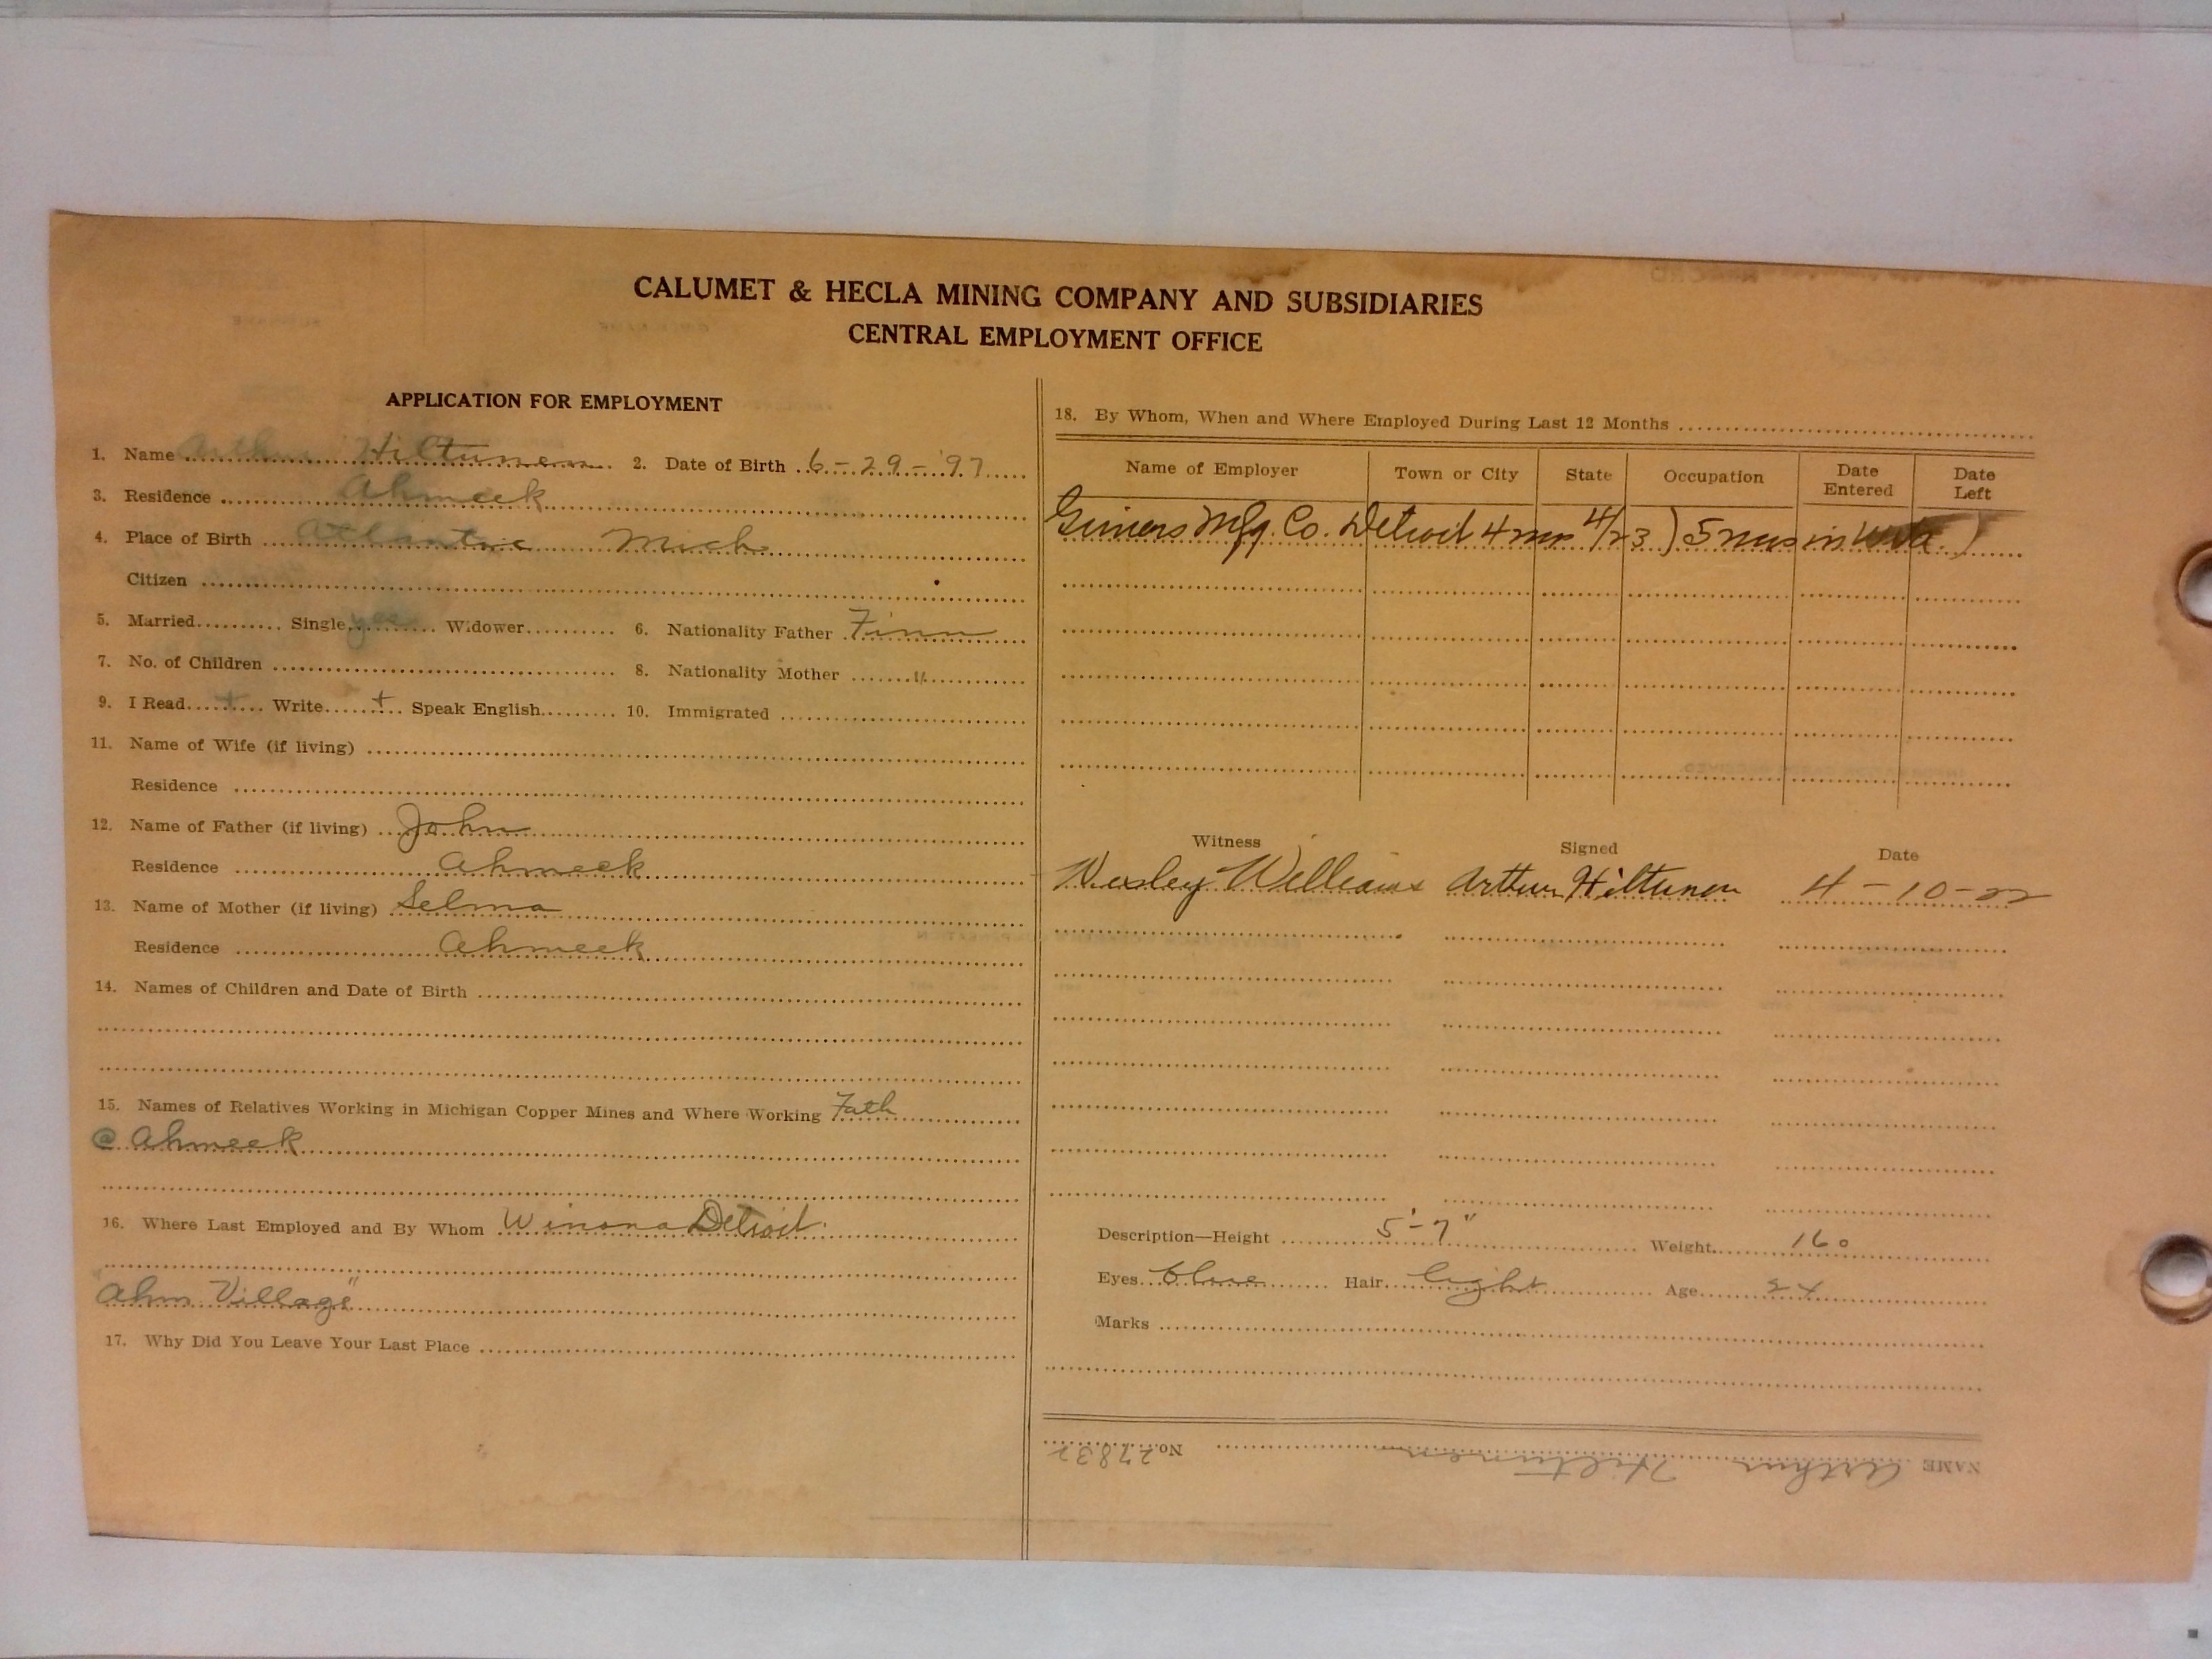 CALUMET & HECLA MINING COMPANY AND SUBSIDIARIES
CENTRAL EMPLOYMENT OFFICE
APPLICATION FOR EMPLOYMENT
1. Name Arthur Hiltunen 2. Date of Birth 6-29-'97
3. Residence Ahmeek
4. Place of Birth Atlantic Mich
Citizen
5. Married Single yes Widower 6. Nationality Father Finn
7. No. of Children 8. Nationality Mother "
9. I Read + Write + Speak English 10. Immigrated
11. Name of Wife (if living)
Residence
12. Name of Father (if living) John
Residence Ahmeek
13. Name of Mother (if living) Selma
Residence Ahmeek
14. Names of Children and Date of Birth
15. Names of Relatives Working in Michigan Copper Mines and Where Working Fath
@ Ahmeek
16. Where Last Employed and By Whom Winona Detroit.
Ahm Village"
17. Why Did You Leave Your Last Place
18. By Whom, When and Where Employed During Last 12 Months
Name of Employer Town or City State Occupation Date Entered Date Left
Mfg. Co. Detroit 4 mos 4/23) 5 mos in
Witness Signed Date
Wesley Williams Arthur Hiltunen 4-10-22
Description—Height 5'-7" Weight 160
Eyes blue Hair light Age 24
Marks
NAME Arthur Hiltunen No. 27832